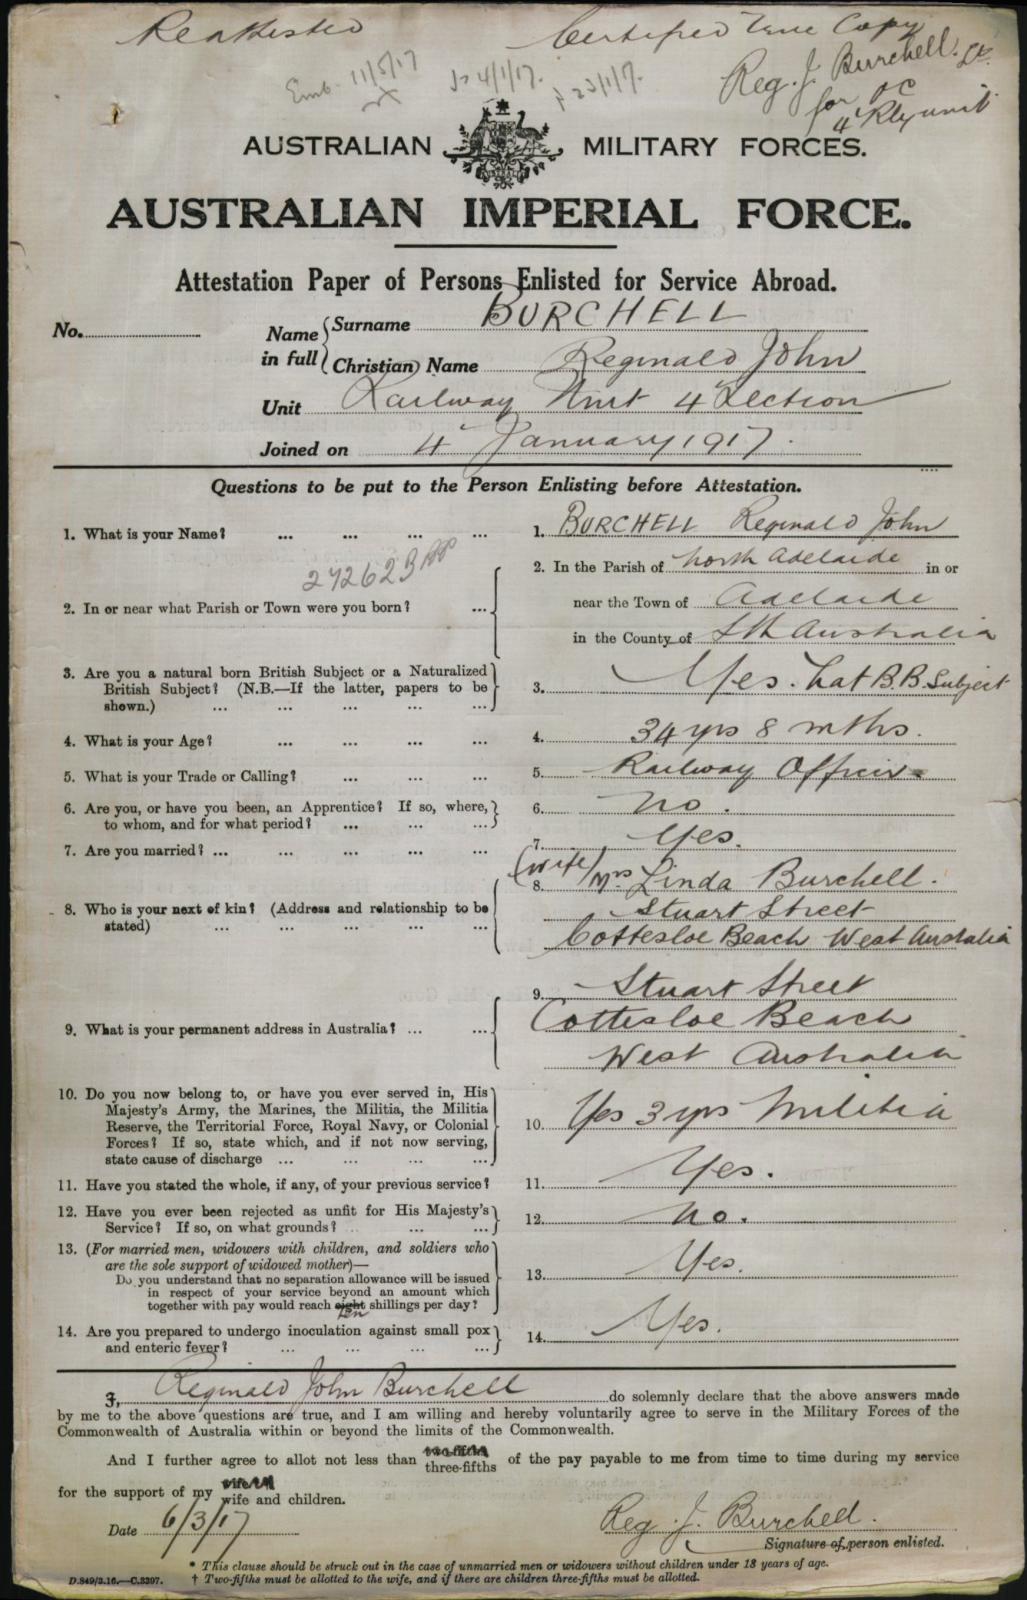 Reattested Certified True Copy
Emb. 11/5/17 Jo 4/1/17. f 23/1/17. Reg. J. Burchell. Lt.
for OC
4 Rly unit
AUSTRALIAN MILITARY FORCES.
AUSTRALIAN IMPERIAL FORCE.
Attestation Paper of Persons Enlisted for Service Abroad.
No. Name in full Surname BURCHELL
Christian Name Reginald John
Unit Railway Unit 4 Section
Joined on 4 January 1917.
Questions to be put to the Person Enlisting before Attestation.
1. What is your Name? ... ... ... ... 1. BURCHELL Reginald John
27262
2. In or near what Parish or Town were you born? ... 2. In the Parish of North Adelaide in or
near the Town of Adelaide
in the County of Sth Australia
3. Are you a natural born British Subject or a Naturalized
British Subject? (N.B.—If the latter, papers to be
shown.) ... ... ... ... ... 3. Yes. Nat B.B. Subject
4. What is your Age? ... ... ... ... 4. 34 yrs 8 mths.
5. What is your Trade or Calling? ... ... ... 5. Railway Officer
6. Are you, or have you been, an Apprentice? If so, where,
to whom, and for what period? ... ... ... 6. No.
7. Are you married? ... ... ... ... ... 7. Yes.
8. Who is your next of kin? (Address and relationship to be
stated) ... ... ... ... ... (wife) 8. Mrs Linda Burchell.
Stuart Street
Cottesloe Beach West Australia
9. What is your permanent address in Australia? ... ... 9. Stuart Street
Cottesloe Beach
West Australia
10. Do you now belong to, or have you ever served in, His
Majesty's Army, the Marines, the Militia, the Militia
Reserve, the Territorial Force, Royal Navy, or Colonial
Forces? If so, state which, and if not now serving,
state cause of discharge ... ... ... ... 10. Yes 3 yrs Militia
11. Have you stated the whole, if any, of your previous service? 11. Yes.
12. Have you ever been rejected as unfit for His Majesty's
Service? If so, on what grounds? ... ... 12. No.
13. (For married men, widowers with children, and soldiers who
are the sole support of widowed mother)—
Do you understand that no separation allowance will be issued
in respect of your service beyond an amount which
together with pay would reach eight ten shillings per day? 13. Yes.
14. Are you prepared to undergo inoculation against small pox
and enteric fever? ... ... ... ... 14. Yes.
I, Reginald John Burchell do solemnly declare that the above answers made
by me to the above questions are true, and I am willing and hereby voluntarily agree to serve in the Military Forces of the
Commonwealth of Australia within or beyond the limits of the Commonwealth.
And I further agree to allot not less than two-fifths three-fifths of the pay payable to me from time to time during my service
for the support of my wife and children.
Date 6/3/17 Reg. J. Burchell.
Signature of person enlisted.
* This clause should be struck out in the case of unmarried men or widowers without children under 18 years of age.
D.849/3.16.—C.3397. † Two-fifths must be allotted to the wife, and if there are children three-fifths must be allotted.